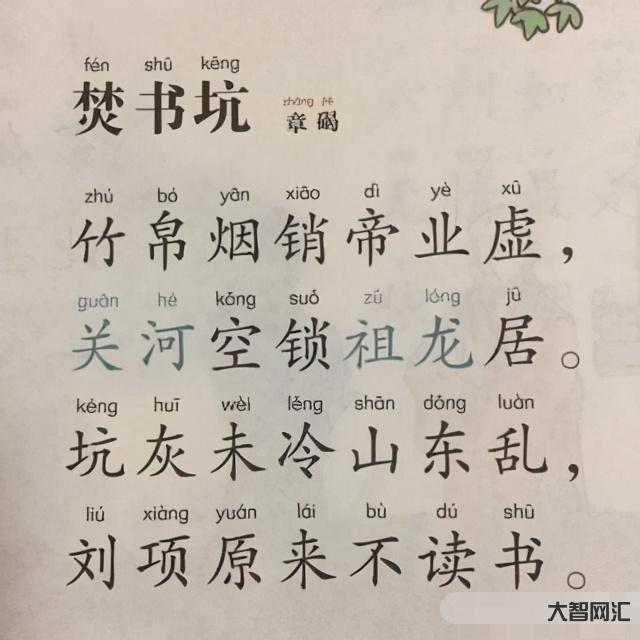 fén shū kēng
焚书坑 章碣
zhú bó yān xiāo dì yè xū
竹帛烟销帝业虚，
guān hé kōng suǒ zǔ lóng jū
关河空锁祖龙居。
kēng huī wèi lěng shān dōng luàn
坑灰未冷山东乱，
liú xiàng yuán lái bù dú shū
刘项原来不读书。
大智网汇